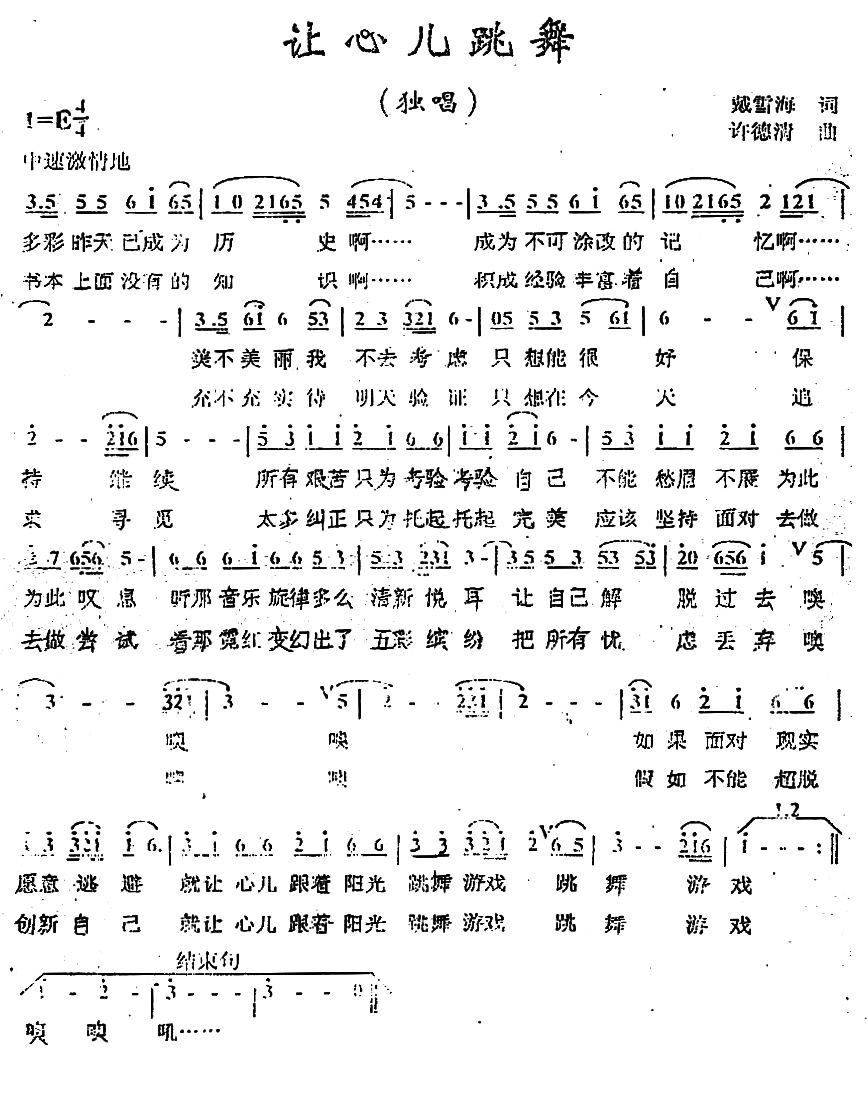 让心儿跳舞
（独唱）
1=E 4/4
戴雪海 词
许德清 曲
中速激情地
3.5 5 5 6 i 65 | 1 0 2165 5 454 | 5 - - - | 3.5 5 5 6 i 65 | 10 2165 2 121 |
多彩昨天已成为 历 史啊…… 成为不可涂改的 记 忆啊……
书本上面没有的 知 识啊…… 积成经验丰富着 自 己啊……
2 - - - | 3.5 6i 6 53 | 2 3 321 6 - | 05 5 3 5 6i | 6 - - V 6i |
美不美丽我 不去考虑 只想能很 好 保
充不充实待 明天验证 只想在今 天 追
2 - - 216 | 5 - - - | 5 3 i i 2 i 6 6 | i i 2i 6 - | 5 3 i i 2 i 6 6 |
持 继续 所有艰苦只为考验考验自己 不能愁眉不展为此
求 寻觅 太多纠正只为托起托起完美 应该坚持面对去做
7 656 5 - | 6 6 6 i 6 6 5 3 | 5 3 231 3 - | 35 5 3 53 53 | 20 656 i V 5 |
为此叹息 听那音乐旋律多么 清新悦耳 让自己解 脱过去噢
去做尝试 看那霓红变幻出了 五彩缤纷 把所有忧 虑丢弃噢
3 - - 321 | 3 - - V 5 | 2 - - 231 | 2 - - - | 31 6 2 i 6 6 |
噢 噢 如果面对现实
噢 噢 假如不能超脱
3 3 321 i 6. | 3 i 6 6 2 i 6 6 | 3 3 321 2 V 65 | 3 - - 216 | i - - - :|
1.2
愿意逃避 就让心儿跟着阳光 跳舞游戏 跳舞 游戏
创新自己 就让心儿跟着阳光 跳舞游戏 跳舞 游戏
结束句
1 - 2 - | 3 - - - | 3 - - 0 ||
噢 噢 吼……